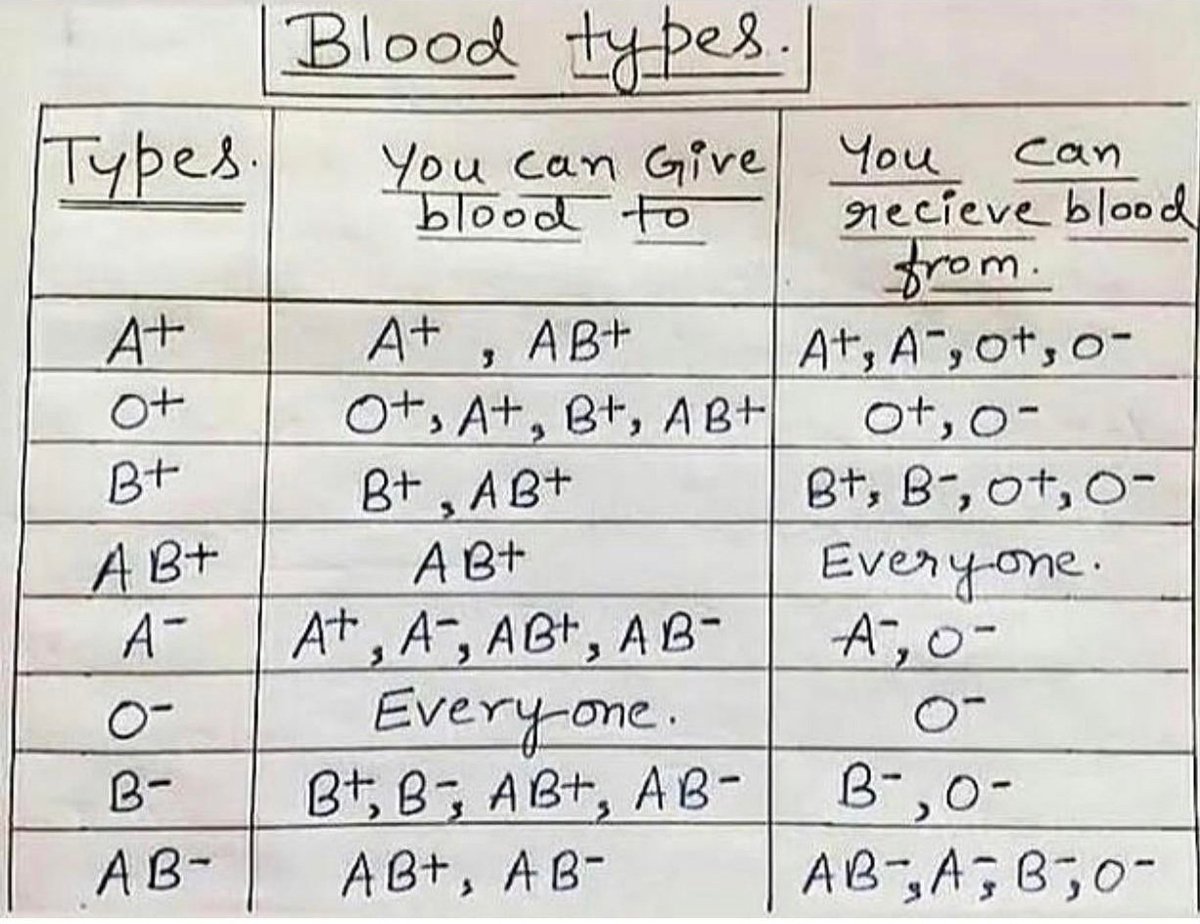 Blood types.
Types. You can Give blood to You can recieve blood from.
A+ A+, AB+ A+, A-, O+, O-
O+ O+, A+, B+, AB+ O+, O-
B+ B+, AB+ B+, B-, O+, O-
AB+ AB+ Everyone.
A- A+, A-, AB+, AB- A-, O-
O- Everyone. O-
B- B+, B-, AB+, AB- B-, O-
AB- AB+, AB- AB-, A-, B-, O-